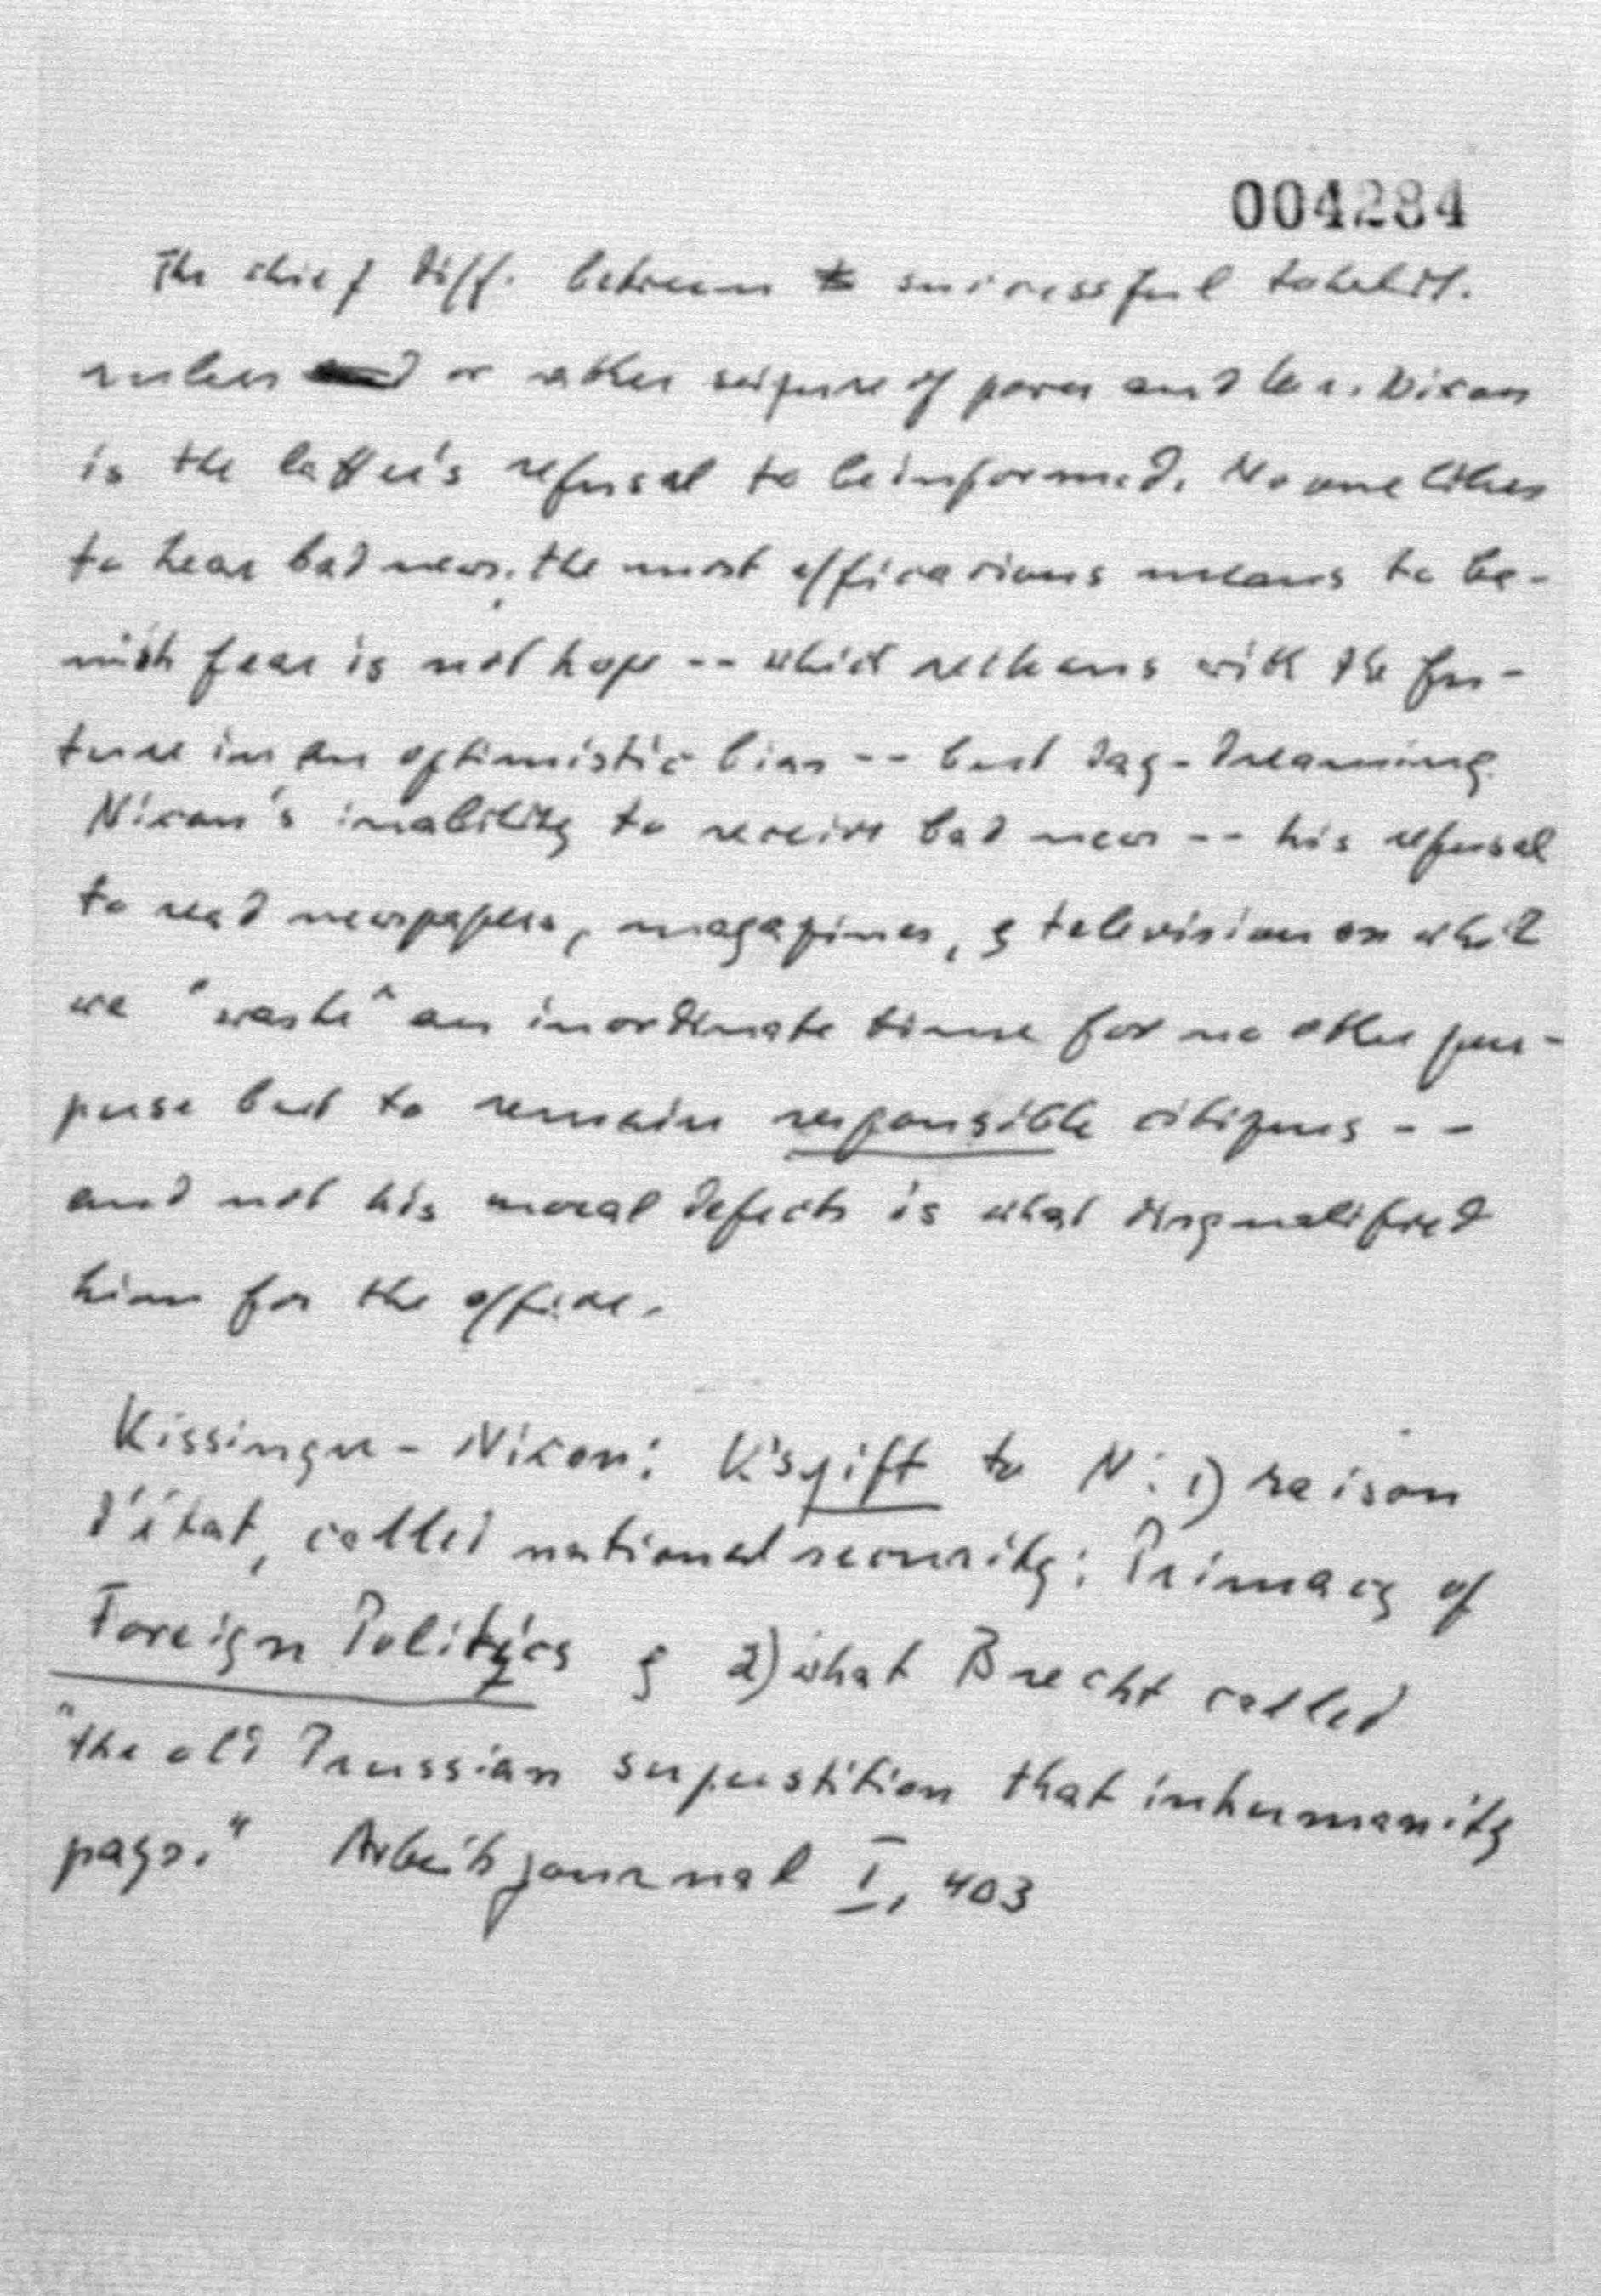 004284
The chief diff. between successful totalit.
rulers or rather seizure of power and Mr. Nixon
is the latter's refusal to be informed. No one likes
to hear bad news. the most efficacious means to ba-
nish fear is not hope -- which reckons with the fu-
ture in an optimistic bias -- but day-dreaming.
Nixon's inability to receive bad news -- his refusal
to read newspapers, magazines, & television on which
we "waste" an inordinate time for no other pur-
pose but to remain responsible citizens --
and not his moral defects is what disqualified
him for the office.
Kissinger - Nixon: K's gift to N: 1) raison
d'état, called national security: Primacy of
Foreign Politics & 2) what Brecht called
"the old Prussian superstition that inhumanity
pays." Arbeitsjournal I, 403